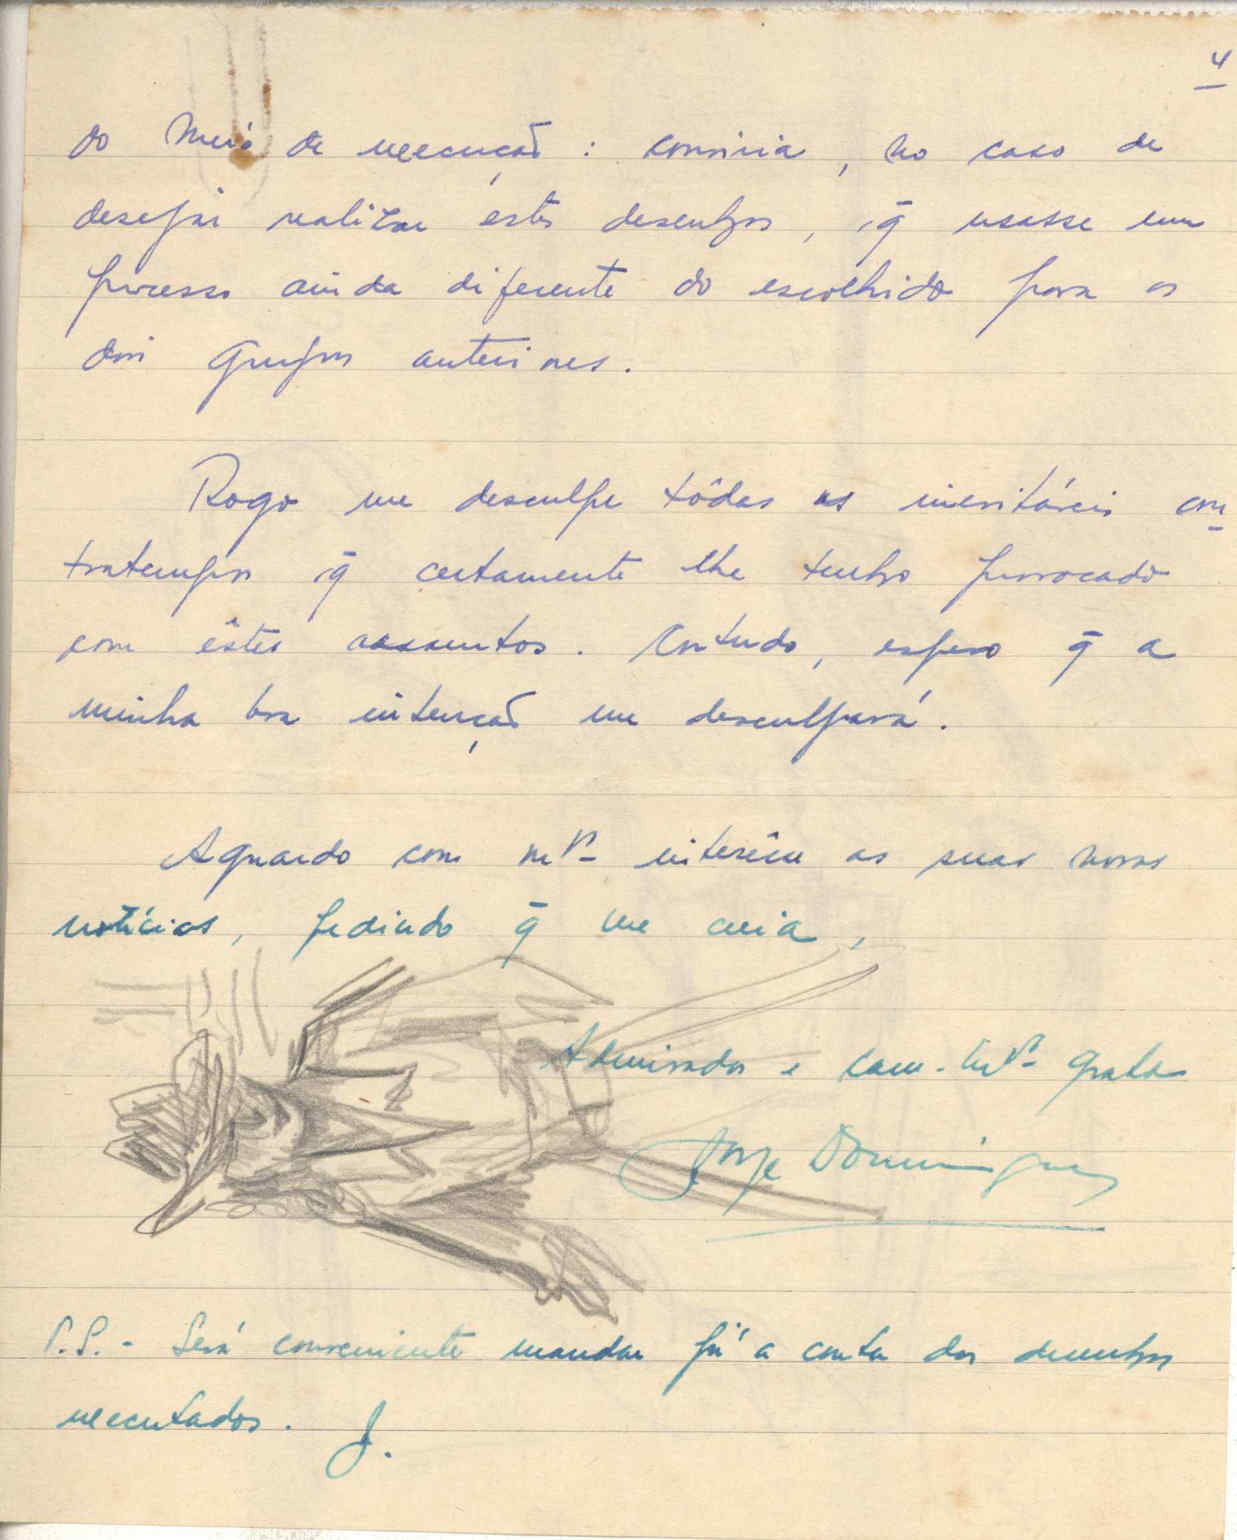 4
do meio de execução : conviria , no caso de
desejar realizar êstes desenhos , q̄ usasse um
processo ainda diferente do escolhido para os
dois grupos anteriores .
Rogo me desculpe tôdas os inevitáveis con-
tratempos q̄ certamente lhe tenho provocado
com êstes assuntos . Contudo , espero q̄ a
minha boa intenção me desculpará .
Aguardo com mto interêsse as suas novas
notícias , pedindo q̄ me creia ,
Admirador e cam. mto grato
Jorge Domingues
P.S. - Será conveniente mandar já a conta dos desenhos
executados . J.